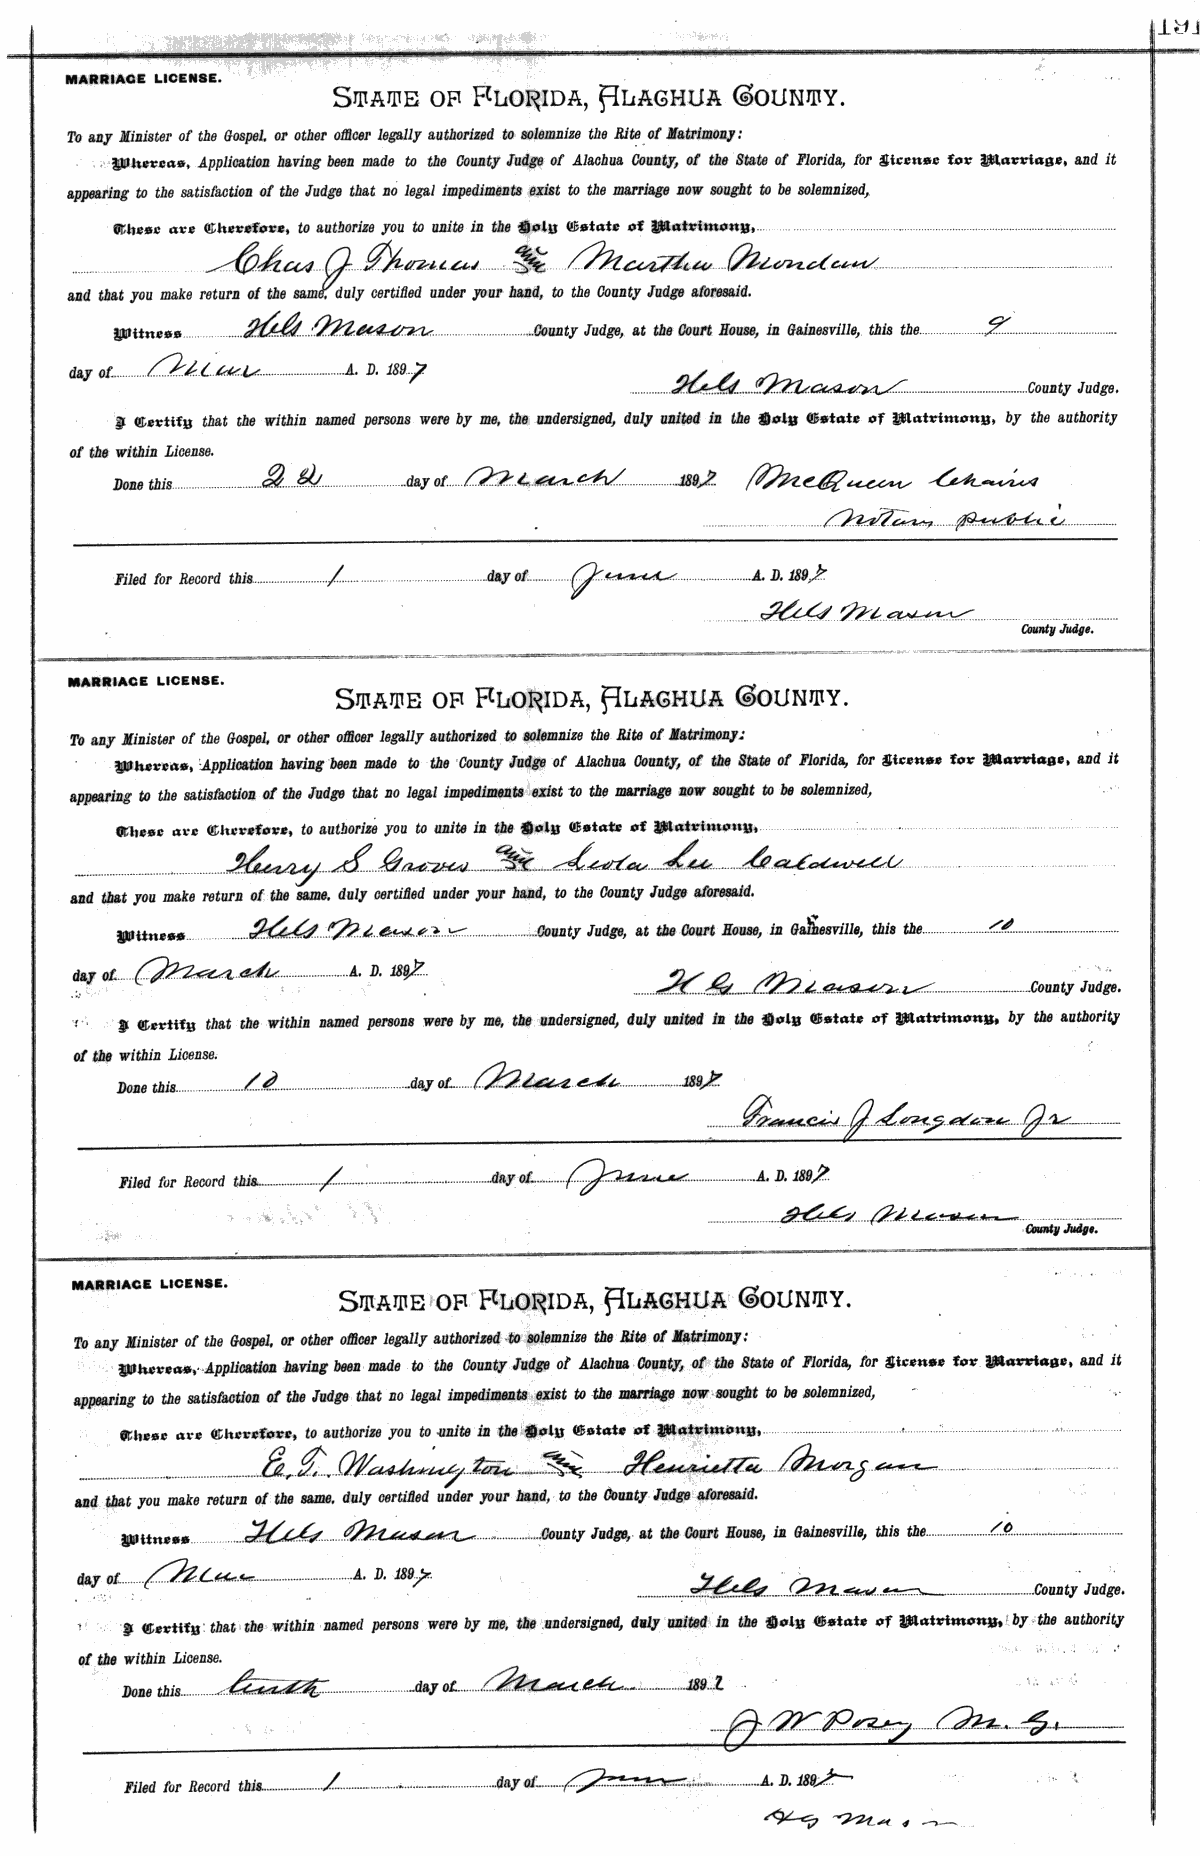 191
MARRIAGE LICENSE.
STATE OF FLORIDA, ALACHUA COUNTY.
To any Minister of the Gospel, or other officer legally authorized to solemnize the Rite of Matrimony:
Whereas, Application having been made to the County Judge of Alachua County, of the State of Florida, for License for Marriage, and it
appearing to the satisfaction of the Judge that no legal impediments exist to the marriage now sought to be solemnized,
These are Therefore, to authorize you to unite in the Holy Estate of Matrimony,
Chas J Thomas and Martha Mondan
and that you make return of the same, duly certified under your hand, to the County Judge aforesaid.
Witness HG Mason County Judge, at the Court House, in Gainesville, this the 9
day of Mar A. D. 1897
HG Mason County Judge.
I Certify that the within named persons were by me, the undersigned, duly united in the Holy Estate of Matrimony, by the authority
of the within License.
Done this 22 day of March 1897 McQueen Chaires
Notary public
Filed for Record this 1 day of June A. D. 1897
HG Mason
County Judge.
MARRIAGE LICENSE.
STATE OF FLORIDA, ALACHUA COUNTY.
To any Minister of the Gospel, or other officer legally authorized to solemnize the Rite of Matrimony:
Whereas, Application having been made to the County Judge of Alachua County, of the State of Florida, for License for Marriage, and it
appearing to the satisfaction of the Judge that no legal impediments exist to the marriage now sought to be solemnized,
These are Therefore, to authorize you to unite in the Holy Estate of Matrimony,
Henry S Groves and Leola Lee Caldwell
and that you make return of the same, duly certified under your hand, to the County Judge aforesaid.
Witness HG Mason County Judge, at the Court House, in Gainesville, this the 10
day of March A. D. 1897
H G Mason County Judge.
I Certify that the within named persons were by me, the undersigned, duly united in the Holy Estate of Matrimony, by the authority
of the within License.
Done this 10 day of March 1897
Francis J Longdon Jr
Filed for Record this 1 day of June A. D. 1897
HG Mason
County Judge.
MARRIAGE LICENSE.
STATE OF FLORIDA, ALACHUA COUNTY.
To any Minister of the Gospel, or other officer legally authorized to solemnize the Rite of Matrimony:
Whereas, Application having been made to the County Judge of Alachua County, of the State of Florida, for License for Marriage, and it
appearing to the satisfaction of the Judge that no legal impediments exist to the marriage now sought to be solemnized,
These are Therefore, to authorize you to unite in the Holy Estate of Matrimony,
E. T. Washington and Henrietta Morgan
and that you make return of the same, duly certified under your hand, to the County Judge aforesaid.
Witness HG Mason County Judge, at the Court House, in Gainesville, this the 10
day of Mar A. D. 1897
HG Mason County Judge.
I Certify that the within named persons were by me, the undersigned, duly united in the Holy Estate of Matrimony, by the authority
of the within License.
Done this tenth day of March 1897
J W Posey M. G.
Filed for Record this 1 day of June A. D. 1897
HG Mason